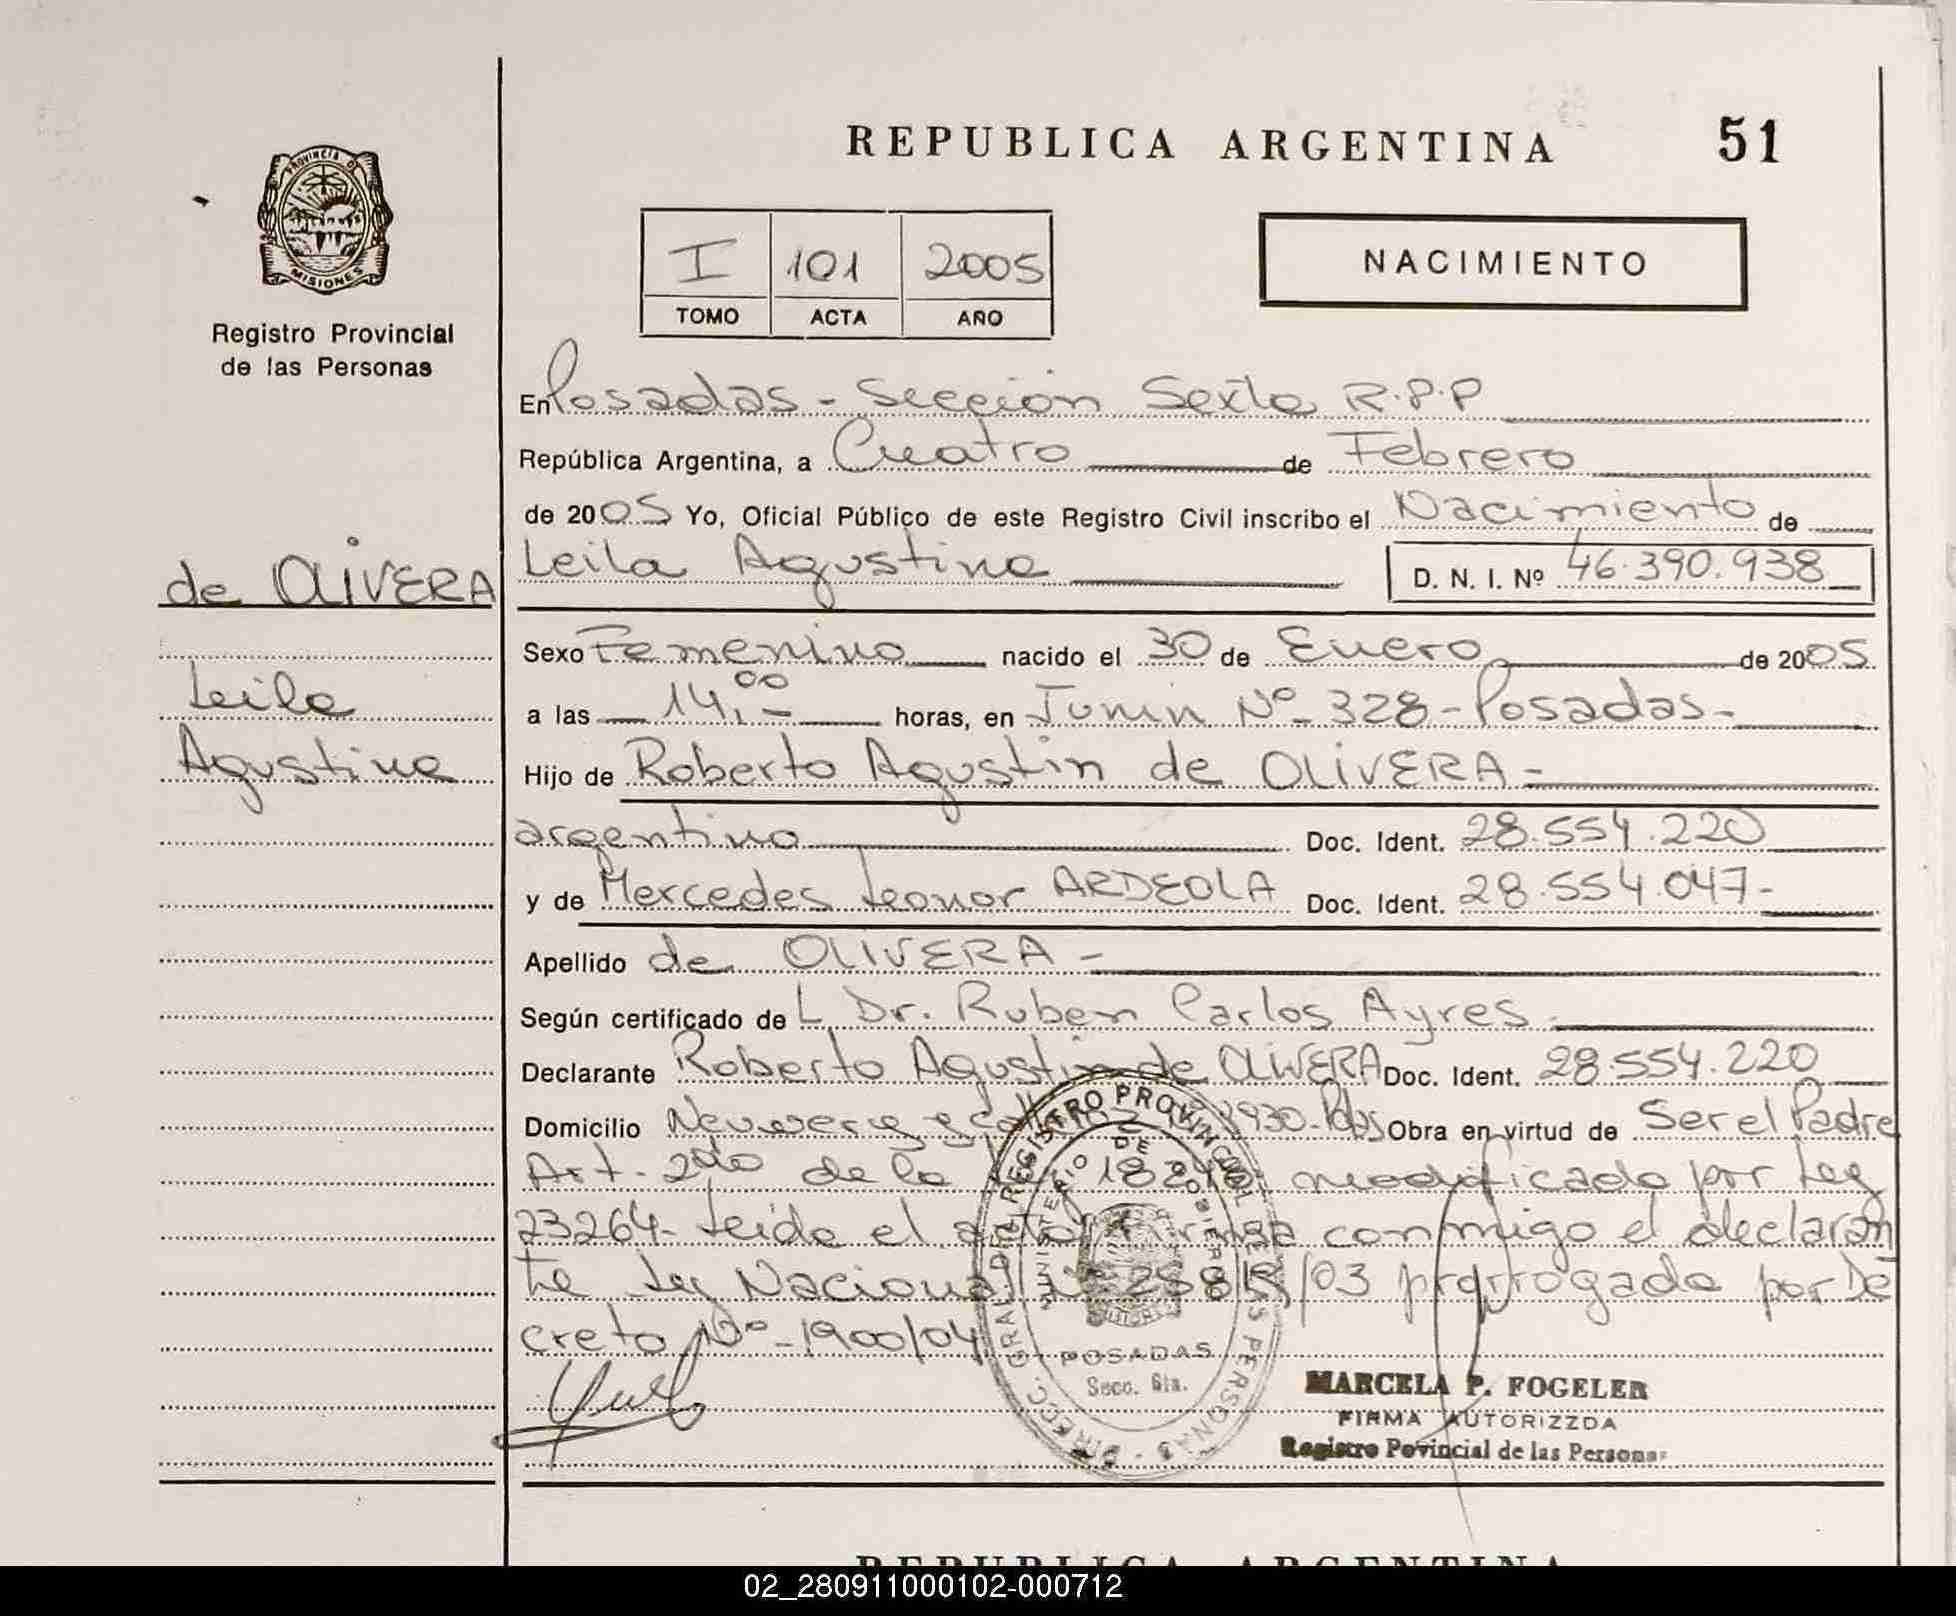 REPUBLICA ARGENTINA
51
PROVINCIA DE
MISIONES
Registro Provincial
de las Personas
I 101 2005
TOMO ACTA AÑO
NACIMIENTO
En Posadas - Sección Sexta R.P.P
República Argentina, a Cuatro de Febrero
de 2005 Yo, Oficial Público de este Registro Civil inscribo el Nacimiento de
Leila Agustina D. N. I. Nº 46.390.938
de OLIVERA
Leila
Agustina
Sexo Femenino nacido el 30 de Enero de 2005
a las 14,00 horas, en Junin Nº 328 - Posadas -
Hijo de Roberto Agustin de OLIVERA -
argentino Doc. Ident. 28.554.220
y de Mercedes Leonor ARDEOLA Doc. Ident. 28.554.047 -
Apellido de OLIVERA -
Según certificado de L Dr. Ruben Carlos Ayres
Declarante Roberto Agustin de OLIVERA Doc. Ident. 28.554.220
Domicilio 1930 - Pdas Obra en virtud de Ser el Padre
Art. 2do de la modificada por Ley
23264 - Leida el acta firma conmigo el declaran
te Ley Nacional /03 prorrogada por De
creto Nº - 1900/04
DIRECC. GRAL. DEL REGISTRO PROVINCIAL DE LAS PERSONAS
MINISTERIO DE GOBIERNO
POSADAS
Secc. 6ta.
MARCELA P. FOGELER
FIRMA AUTORIZZDA
Registro Povincial de las Personas
REPUBLICA ARGENTINA
02_280911000102-000712